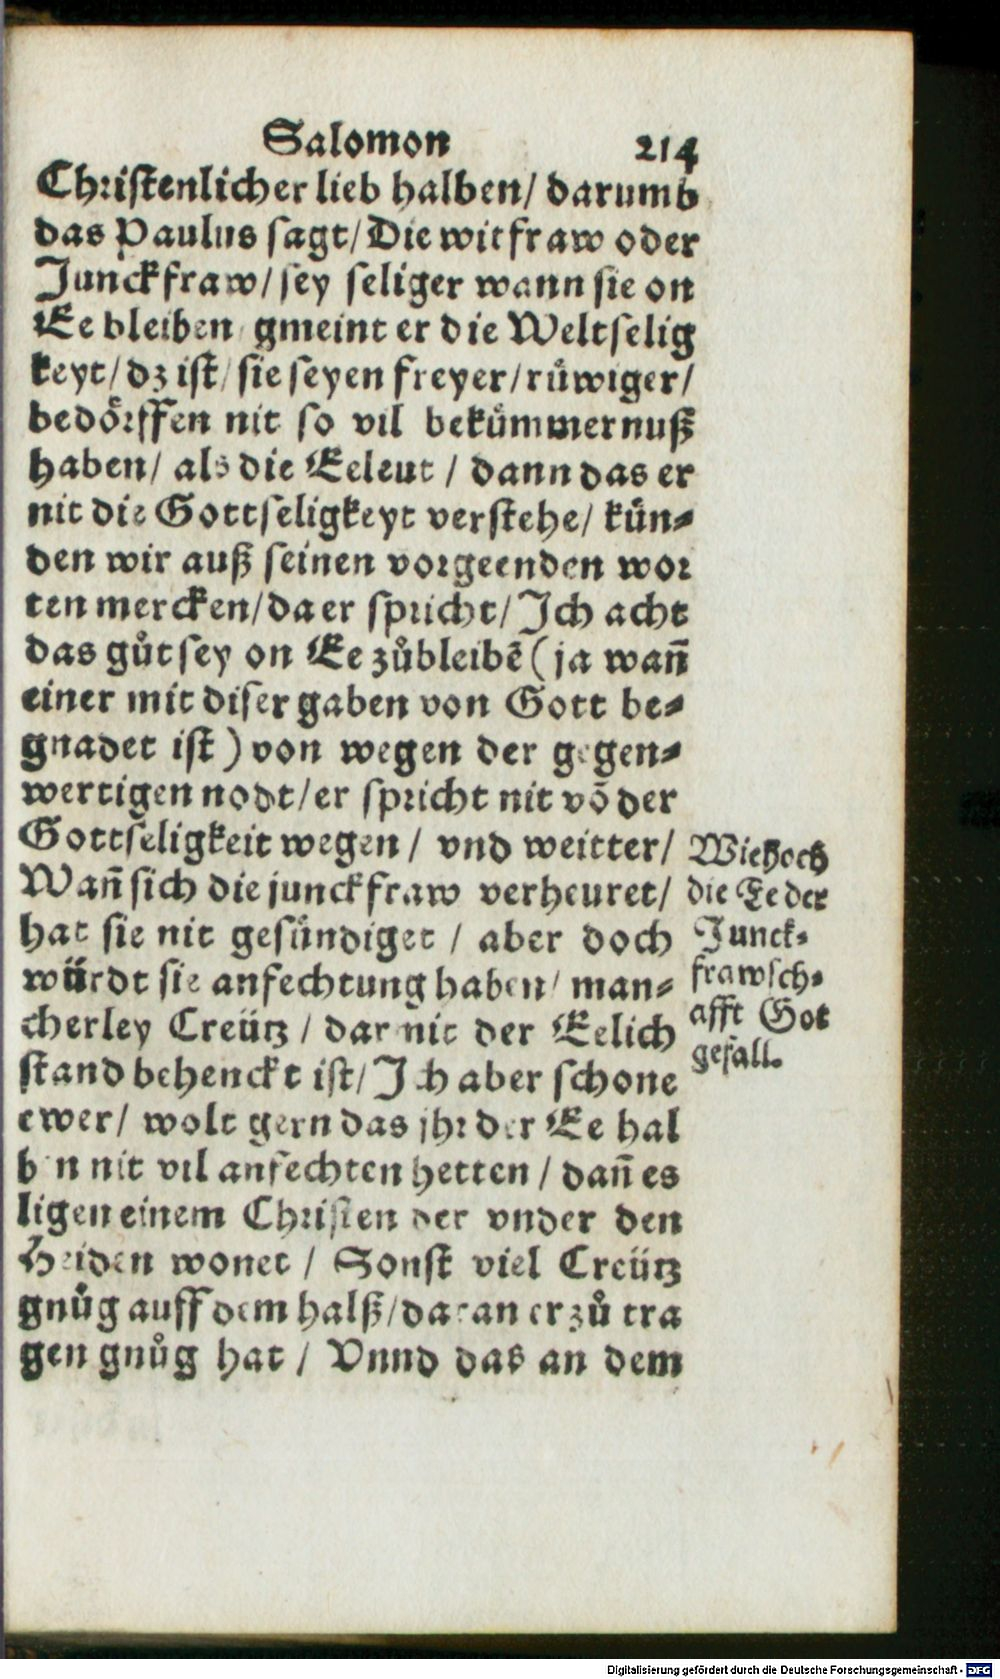 Salomon 214
Christenlicher lieb halben/ darumb
das Paulus sagt/ Die witfraw oder
Junckfraw/ sey seliger wann sie on
Ee bleiben/ gmeint er die Weltselig
keyt/ dz ist/ sie seyen freyer/ rüwiger/
bedörffen nit so vil bekümmernuß
haben/ als die Eeleut / dann das er
nit die Gottseligkeyt verstehe/ kün⸗
den wir auß seinen vorgeenden wor
ten mercken/ da er spricht/ Jch acht
das gůt sey on Ee zůbleibẽ (ja wañ
einer mit diser gaben von Gott be⸗
gnadet ist) von wegen der gegen⸗
wertigen nodt/ er spricht nit võ der
Gottseligkeit wegen / vnd weitter/
Wañ sich die junckfraw verheuret/
hat sie nit gesündiget / aber doch
würdt sie anfechtung haben/ man⸗
cherley Creütz / dar mit der Eelich
stand behenckt ist/ Jch aber schone
ewer/ wolt gern das jhr der Ee hal
ben nit vil anfechten hetten / dañ es
ligen einem Christen der vnder den
Heiden wonet / Sonst viel Creütz
gnůg auff dem halß/ daran er zů tra
gen gnůg hat / Vnnd das an dem
Wie hoch
die Ee der
Junck⸗
frawsch⸗
afft Got
gefall.
Digitalisierung gefördert durch die Deutsche Forschungsgemeinschaft - DFG